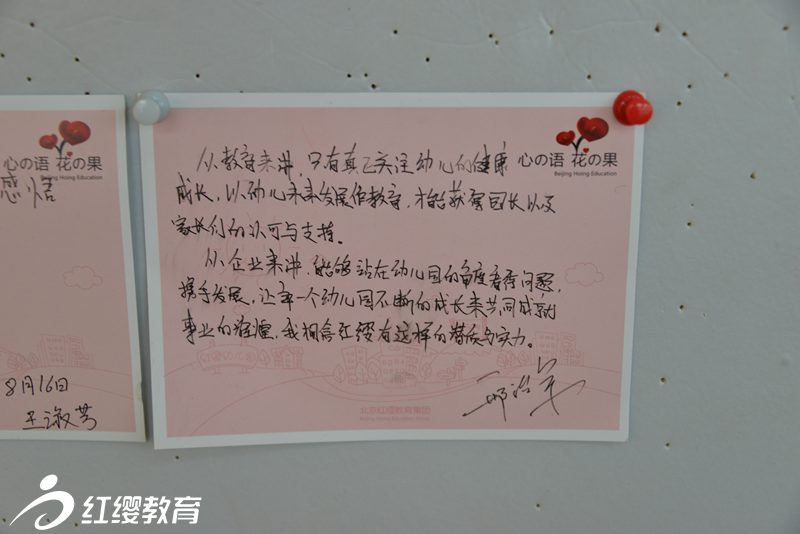 心の语 花の果
Beijing Hoing Education
感悟
8月16日
王淑芳
心の语 花の果
Beijing Hoing Education
从教育来讲，只有真正关注幼儿的健康
成长，以幼儿未来发展做教育，才能获得园长以及
家长们的认可与支持。
从企业来讲，能够站在幼儿园的角度看待问题，
携手发展，让每一个幼儿园不断的成长来共同成就
事业的辉煌，我相信红缨有这样的潜质与实力。
北京红缨教育集团
Beijing Hoing Education
红缨教育